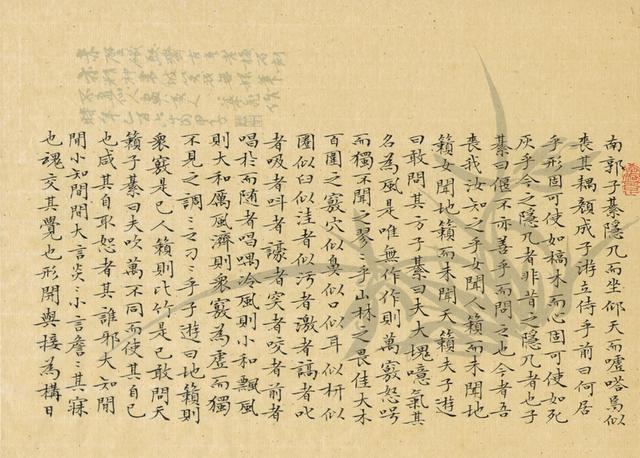 南郭子綦隱几而坐仰天而噓嗒焉似
喪其耦顏成子游立侍乎前曰何居
乎形固可使如槁木而心固可使如死
灰乎今之隱几者非昔之隱几者也子
綦曰偃不亦善乎而問之也今者吾
喪我汝知之乎女聞人籟而未聞地
籟女聞地籟而未聞天籟夫子游
曰敢問其方子綦曰夫大塊噫氣其
名為風是唯無作作則萬竅怒呺
而獨不聞之翏〻乎山林之畏佳大木
百圍之竅穴似鼻似口似耳似枅似
圈似臼似洼者似污者激者謞者叱
者吸者叫者譹者突者咬者前者
唱於而隨者唱喁泠風則小和飄風
則大和厲風濟則衆竅為虛而獨
不見之調〻之刁〻乎子游曰地籟則
衆竅是已人籟則比竹是已敢問天
籟子綦曰夫吹萬不同而使其自已
也咸其自取怒者其誰邪大知閑
閑小知間間大言炎〻小言詹〻其寐
也魂交其覺也形開與接為構日